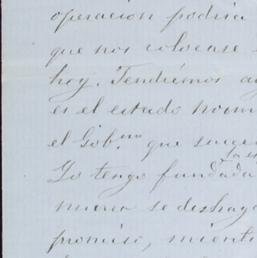 operacion podria
que nos colocase
hoy. Tendriamos
es el estado norm
el Gob.no que surge
Yo tengo fundada
manera se deshaga
promiso, mient